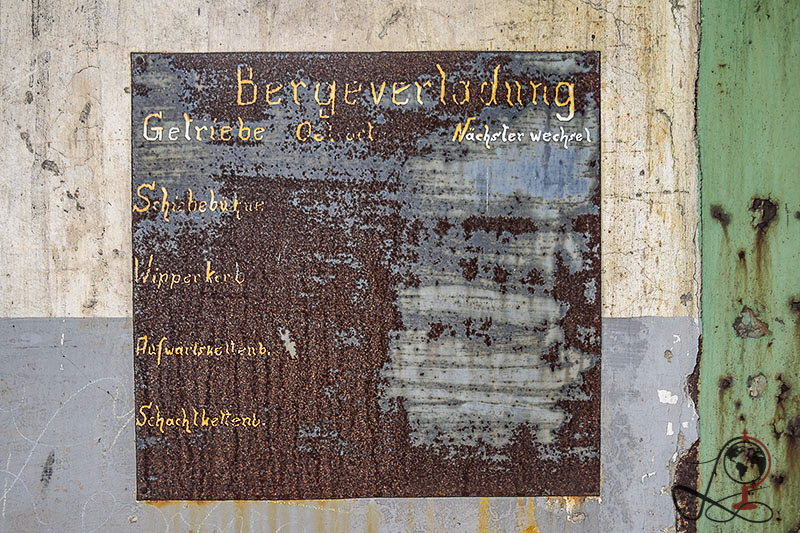 Bergeverladung
Getriebe Nächster wechsel
Schiebebühne
Wipperkorb
Aufwartskettenb.
Schachtkettenb.